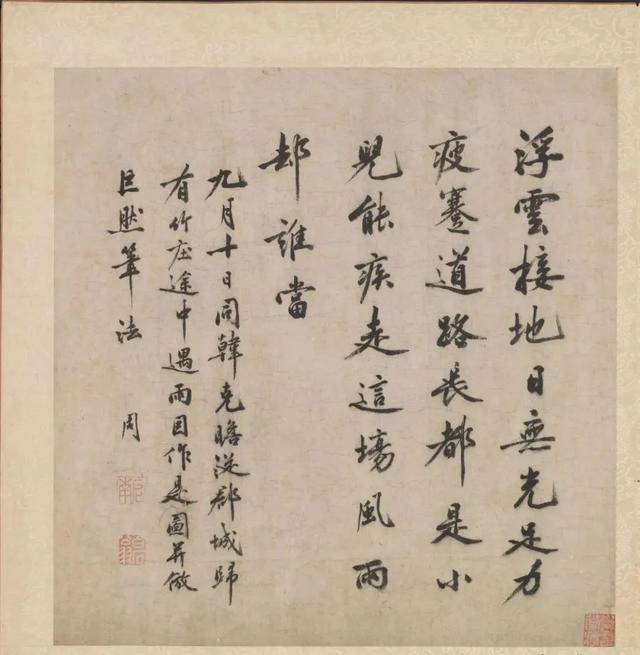 浮雲接地日無光足力
疲蹇道路長都是小
兒能疾走這場風雨
却誰當
九月十日同韓克瞻從郡城歸
有竹庄途中遇雨因作是圖并倣
巨然筆法
周
啟南